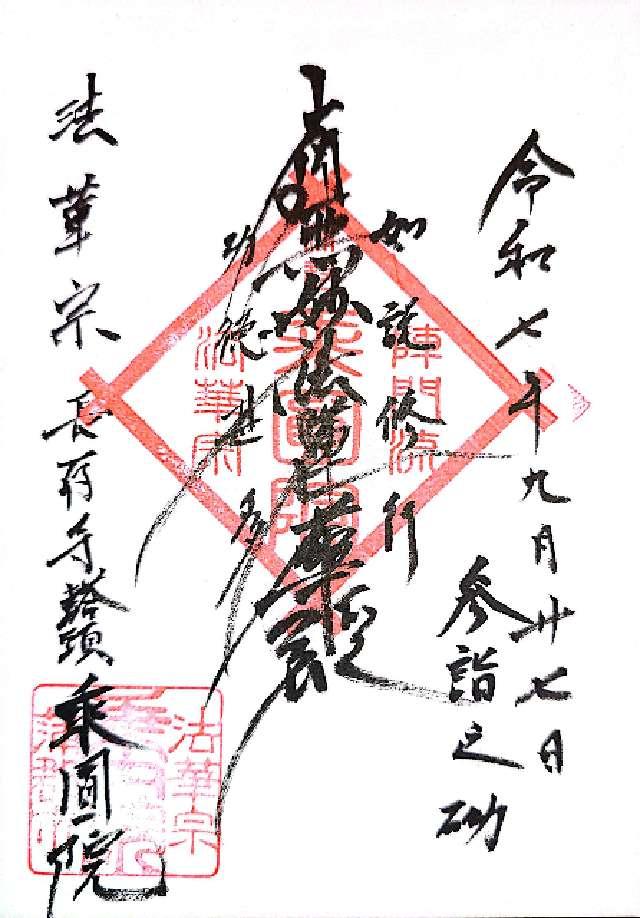 令和七年九月廿七日
参詣之砌
如説修行
南無妙法蓮華経
功徳甚多
法華宗 長存寺塔頭 乗圓院
陣門流
乗圓院
法華宗
法華宗